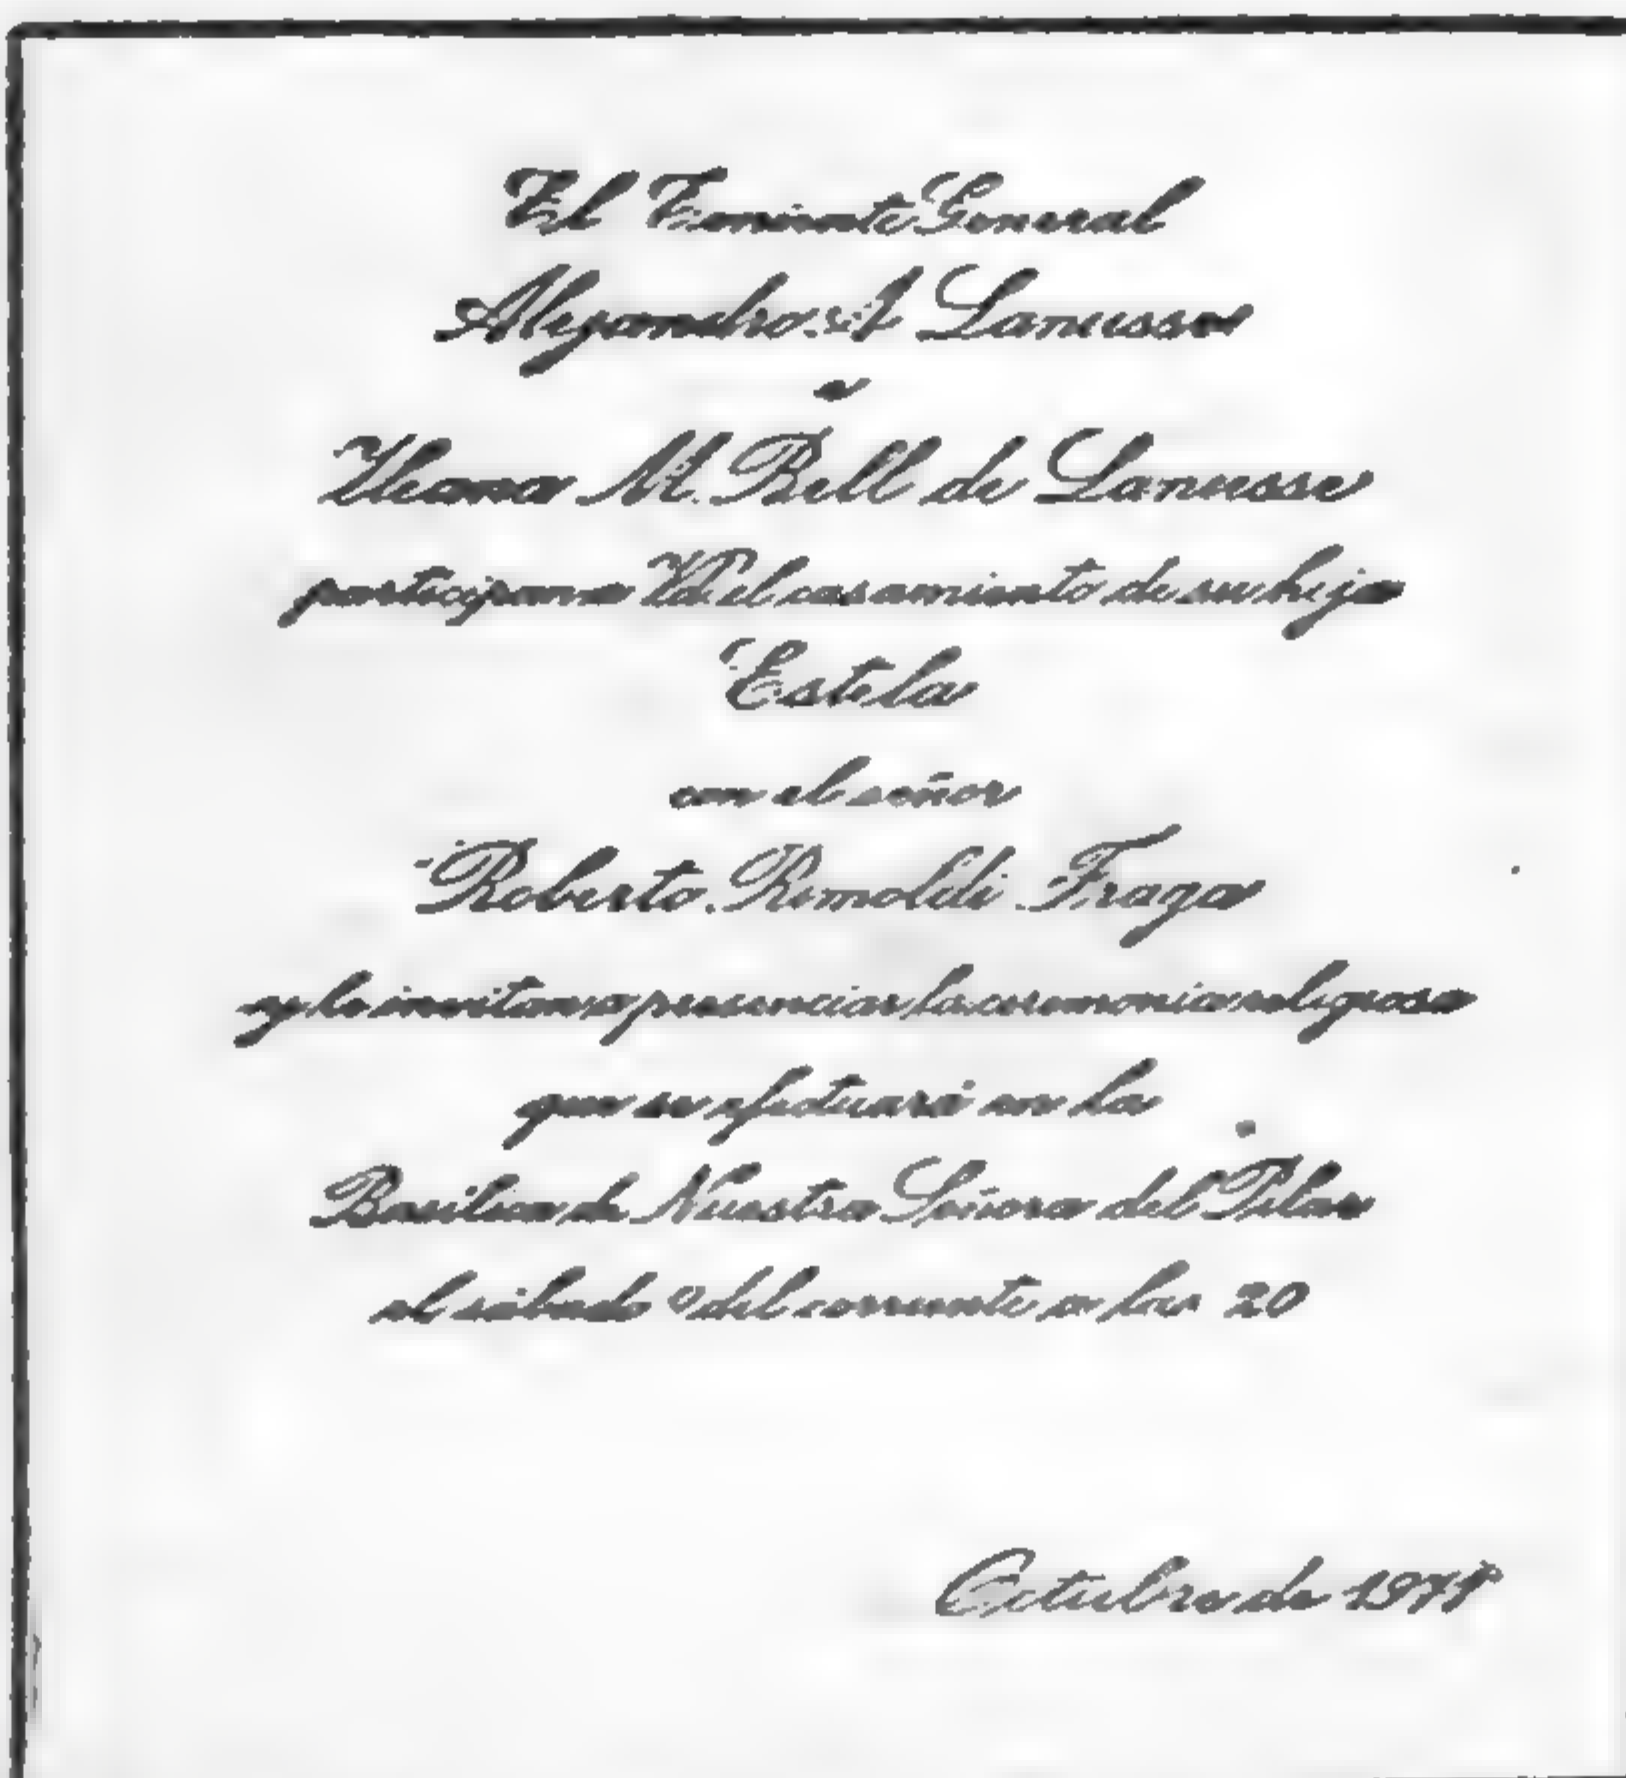 El Teniente General
Alejandro A. Lanusse
e
Ileana M. Bell de Lanusse
participan a Vd. el casamiento de su hija
Estela
con el señor
Roberto Rimoldi Fraga
y le invitan a presenciar la ceremonia religiosa
que se efectuará en la
Basílica de Nuestra Señora del Pilar
el sábado del corriente a las 20
Octubre de